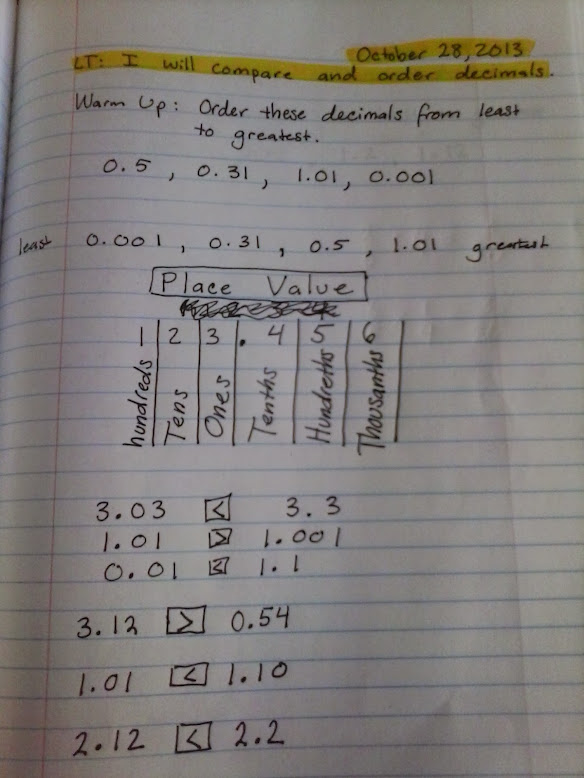 October 28, 2013
LT: I will compare and order decimals.
Warm Up: Order these decimals from least
to greatest.
0.5 , 0.31 , 1.01, 0.001
least 0.001 , 0.31 , 0.5 , 1.01 greatest
Place Value
1 2 3 . 4 5 6
hundreds Tens Ones Tenths Hundreths Thousanths
3.03 < 3.3
1.01 > 1.001
0.01 < 1.1
3.12 > 0.54
1.01 < 1.10
2.12 < 2.2